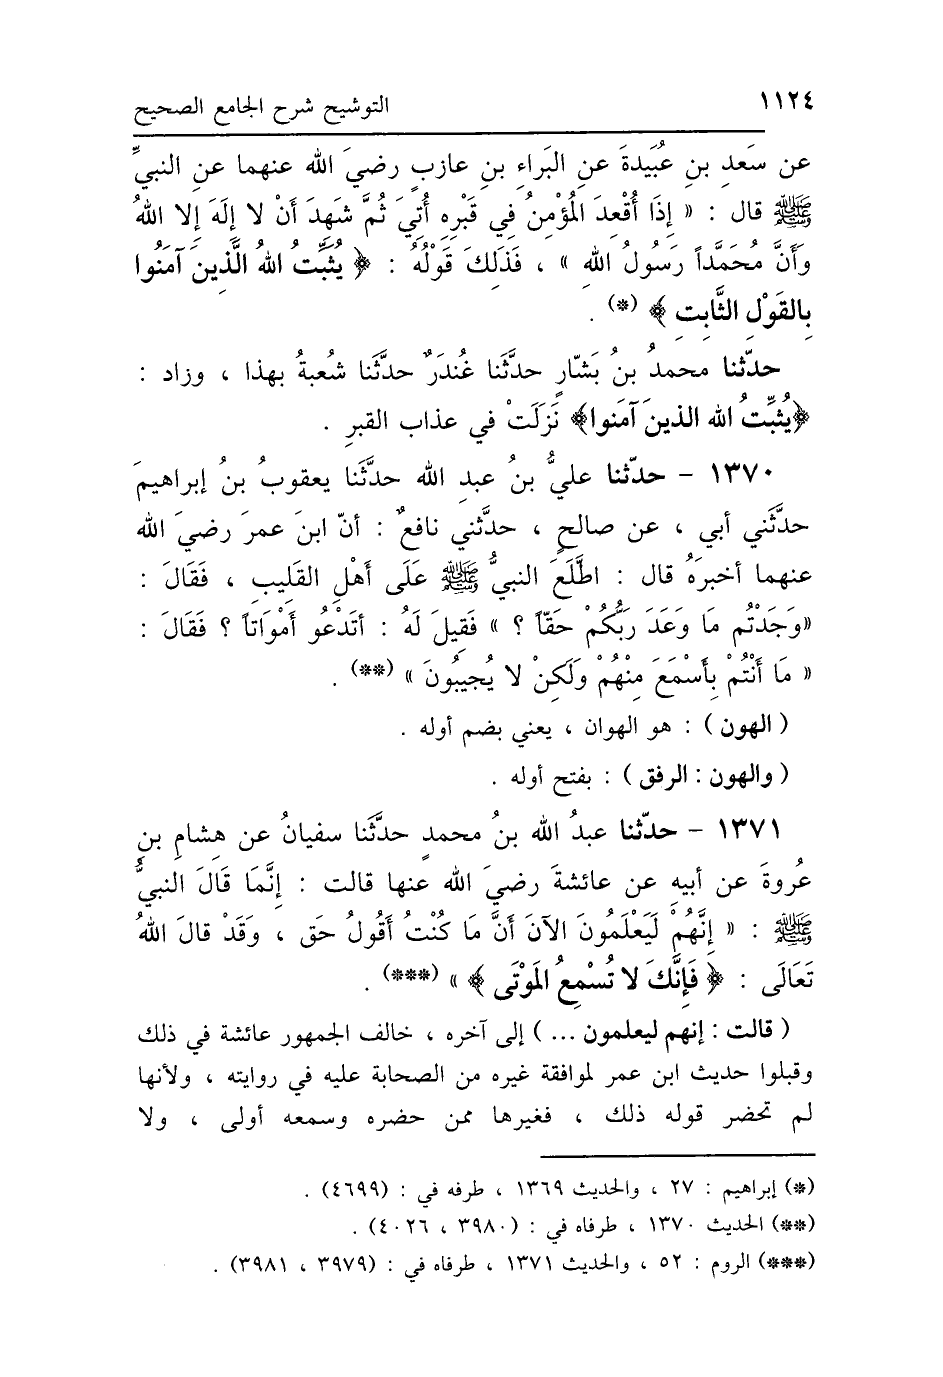 ١١٢٤ التوشيح شرح الجامع الصحيح
عن سَعدِ بنِ عُبَيدةَ عنِ البَراءِ بنِ عازبٍ رضيَ الله عنهما عنِ النبيِّ
ﷺ قال : « إِذَا أُقْعِدَ المُؤْمِنُ فِي قَبْرِهِ أُتِيَ ثُمَّ شَهِدَ أَنْ لا إِلَهَ إِلا اللهُ
وَأَنَّ مُحَمَّداً رَسُولُ اللهِ » ، فَذَلِكَ قَوْلُهُ : ﴿ يُثَبِّتُ اللهُ الَّذِينَ آمَنُوا
بِالقَوْلِ الثَّابِتِ ﴾ (*) .
حدّثنا محمدُ بنُ بَشّارٍ حدَّثَنا غُندَرٌ حدَّثَنا شُعبةُ بهذا ، وزاد :
﴿يُثَبِّتُ الله الذينَ آمَنوا﴾ نَزَلَتْ في عذاب القبرِ .
١٣٧٠ - حدّثنا عليُّ بنُ عبدِ الله حدَّثَنا يعقوبُ بنُ إبراهيمَ
حدَّثَني أبي ، عن صالحٍ ، حدَّثني نافعٌ : أنّ ابنَ عمرَ رضيَ الله
عنهما أخبرَهُ قال : اطَّلَعَ النبيُّ ﷺ عَلَى أَهْلِ القَلِيبِ ، فَقَالَ :
«وَجَدْتُم مَا وَعَدَ رَبُّكُمْ حَقّاً ؟ » فَقِيلَ لَهُ : أتَدْعُو أَمْوَاتاً ؟ فَقَالَ :
« مَا أَنْتُمْ بِأَسْمَعَ مِنْهُمْ وَلَكِنْ لا يُجِيبُونَ » (**) .
( الهون ) : هو الهوان ، يعني بضم أوله .
( والهون : الرفق ) : بفتح أوله .
١٣٧١ - حدّثنا عبدُ الله بنُ محمدٍ حدَّثَنا سفيانُ عن هِشامِ بنِ
عُروةَ عن أبيه عن عائشةَ رضيَ الله عنها قالت : إنَّمَا قَالَ النبيُّ
ﷺ : « إِنَّهُمْ لَيَعْلَمُونَ الآنَ أَنَّ مَا كُنْتُ أَقُولُ حَق ، وَقَدْ قالَ اللهُ
تَعَالَى : ﴿ فَإِنَّكَ لا تُسْمِعُ المَوْتَى ﴾ » (***) .
( قالت : إنهم ليعلمون ... ) إلى آخره ، خالف الجمهور عائشة في ذلك
وقبلوا حديث ابن عمر لموافقة غيره من الصحابة عليه في روايته ، ولأنها
لم تحضر قوله ذلك ، فغيرها ممن حضره وسمعه أولى ، ولا
(*) إبراهيم : ٢٧ ، والحديث ١٣٦٩ ، طرفه في : (٤٦٩٩) .
(**) الحديث ١٣٧٠ ، طرفاه في : (٣٩٨٠ ، ٤٠٢٦) .
(***) الروم : ٥٢ ، والحديث ١٣٧١ ، طرفاه في : (٣٩٧٩ ، ٣٩٨١) .